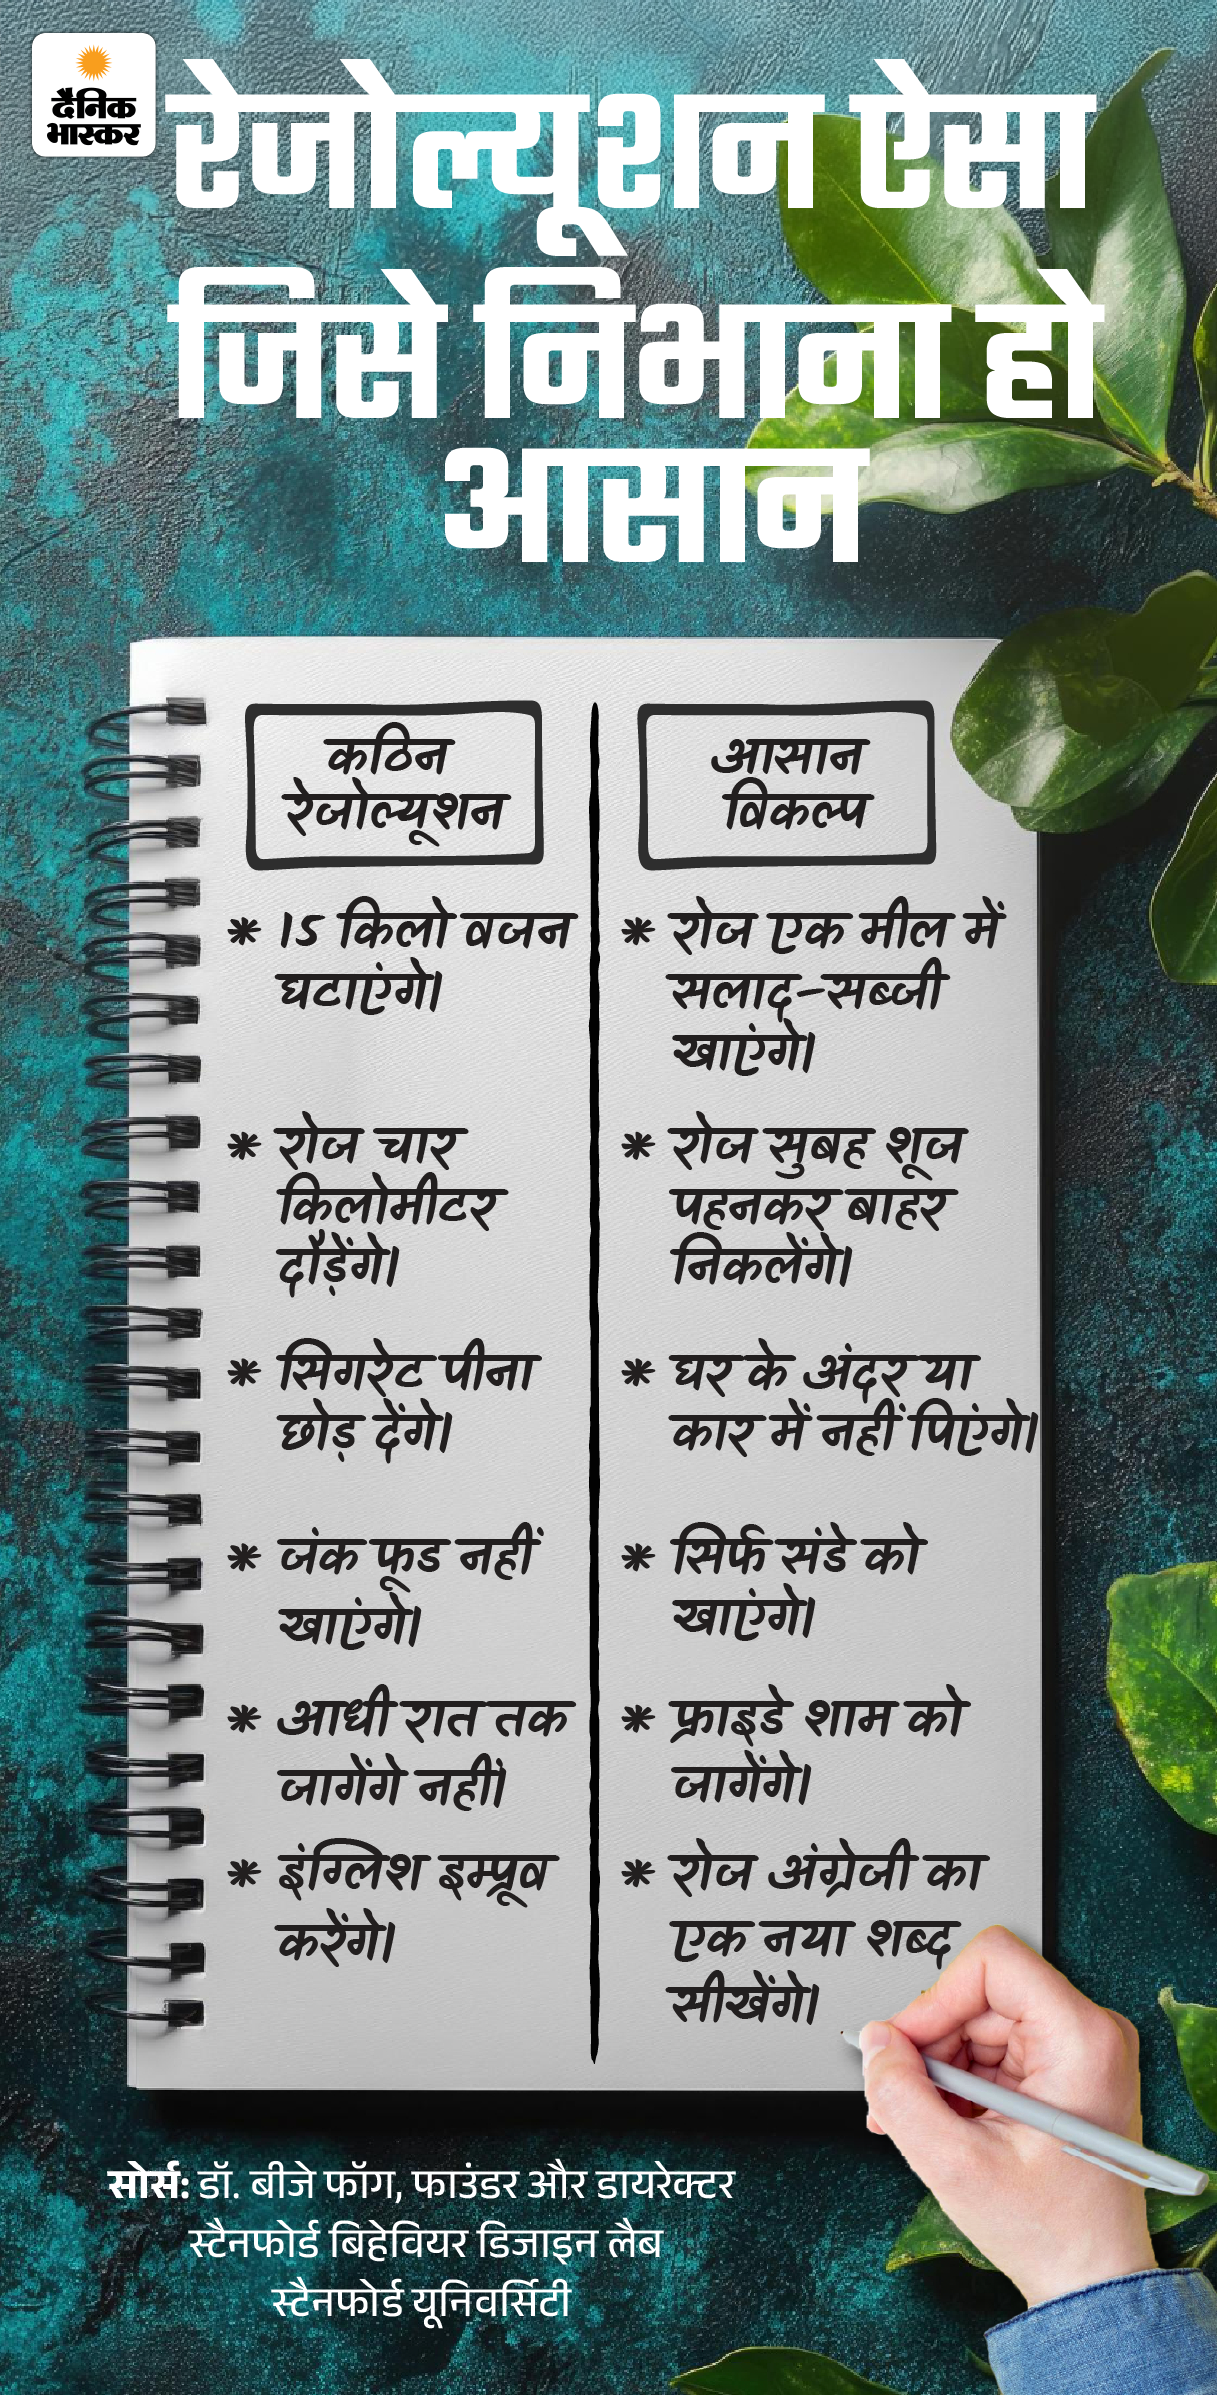 दैनिक
भास्कर
रेजोल्यूशन ऐसा
जिसे निभाना हो
आसान
कठिन
रेजोल्यूशन
* 15 किलो वजन
घटाएंगे।
* रोज चार
किलोमीटर
दौड़ेंगे।
* सिगरेट पीना
छोड़ देंगे।
* जंक फूड नहीं
खाएंगे।
* आधी रात तक
जागेंगे नहीं।
* इंग्लिश इम्प्रूव
करेंगे।
आसान
विकल्प
* रोज एक मील में
सलाद-सब्जी
खाएंगे।
* रोज सुबह शूज
पहनकर बाहर
निकलेंगे।
* घर के अंदर या
कार में नहीं पिएंगे।
* सिर्फ संडे को
खाएंगे।
* फ्राइडे शाम को
जागेंगे।
* रोज अंग्रेजी का
एक नया शब्द
सीखेंगे।
सोर्स: डॉ. बीजे फॉग, फाउंडर और डायरेक्टर
स्टैनफोर्ड बिहेवियर डिजाइन लैब
स्टैनफोर्ड यूनिवर्सिटी